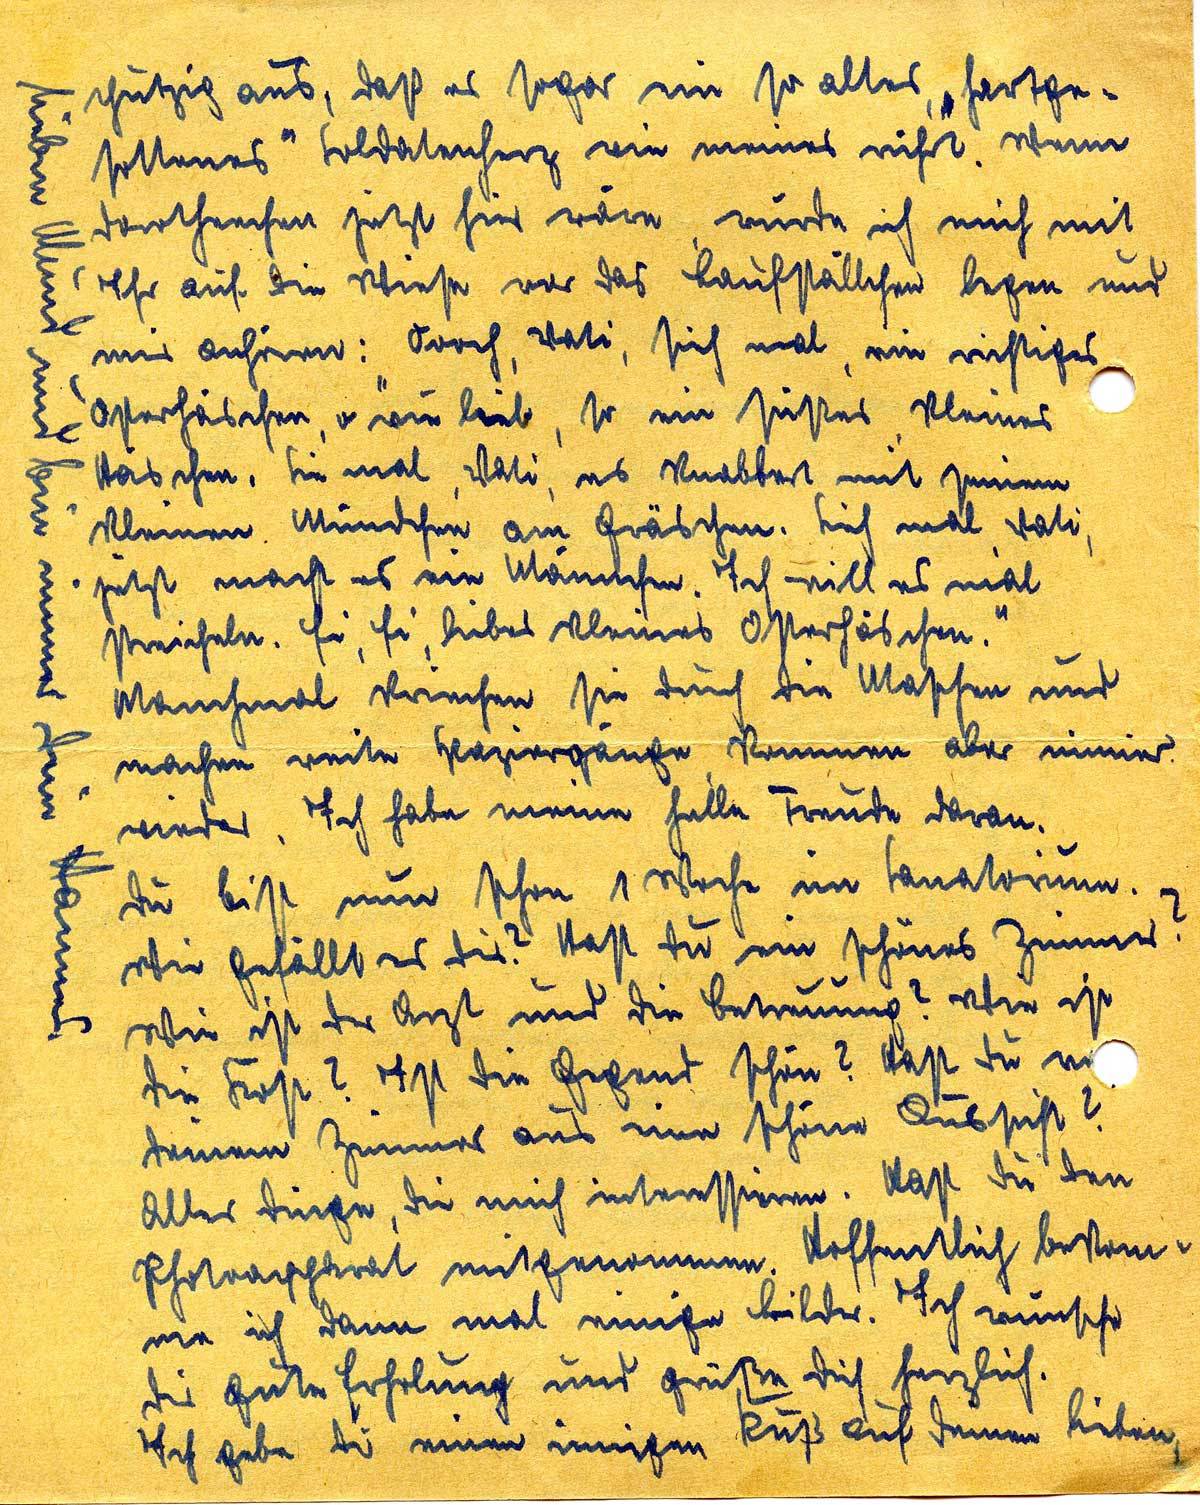 schutzig aus, daß es sogar ein so altes, „hartge-
sottenes“ Soldatenherz wie meines rührt. Wenn
Dorotheechen jetzt hier wäre, würde ich mich mit
Ihr auf die Wiese vor das Laufställchen legen und
mir anhören: Vati, sieh mal, ein richtiges
Osterhäschen, o wie lieb, so ein süßes, kleines
Häschen. Sie mal, Vati, es knabbert mit seinem
kleinen Mündchen am Gräschen. Sieh mal, Vati,
jetzt macht es ein Männchen. Ich will es mal
streicheln. Ei, Ei, liebes kleines Osterhäschen.“
Manchmal kriechen sie durch die Maschen und
machen weite Spaziergänge, kommen aber immer
wieder. Ich habe meine helle Freude daran.
Du bist nun schon 1 Woche im Sanatorium.
Wie gefällt es dir? Hast du ein schönes Zimmer?
Wie ist der Arzt und die Betreuung? Wie ist
die Kost? Ist die Gegend schön? Hast du
deinem Zimmer aus eine schöne Aussicht?
Alles Dinge, die mich interessieren. Hast du den
Photoapparat mitgenommen. Hoffentlich bekom-
me ich dann mal einige Bilder. Ich wünsche
dir gute Erholung und grüße dich herzlich.
Ich gebe dir einen innigen Kuß auf deinen lieben,
lieben Mund und bin immer Dein